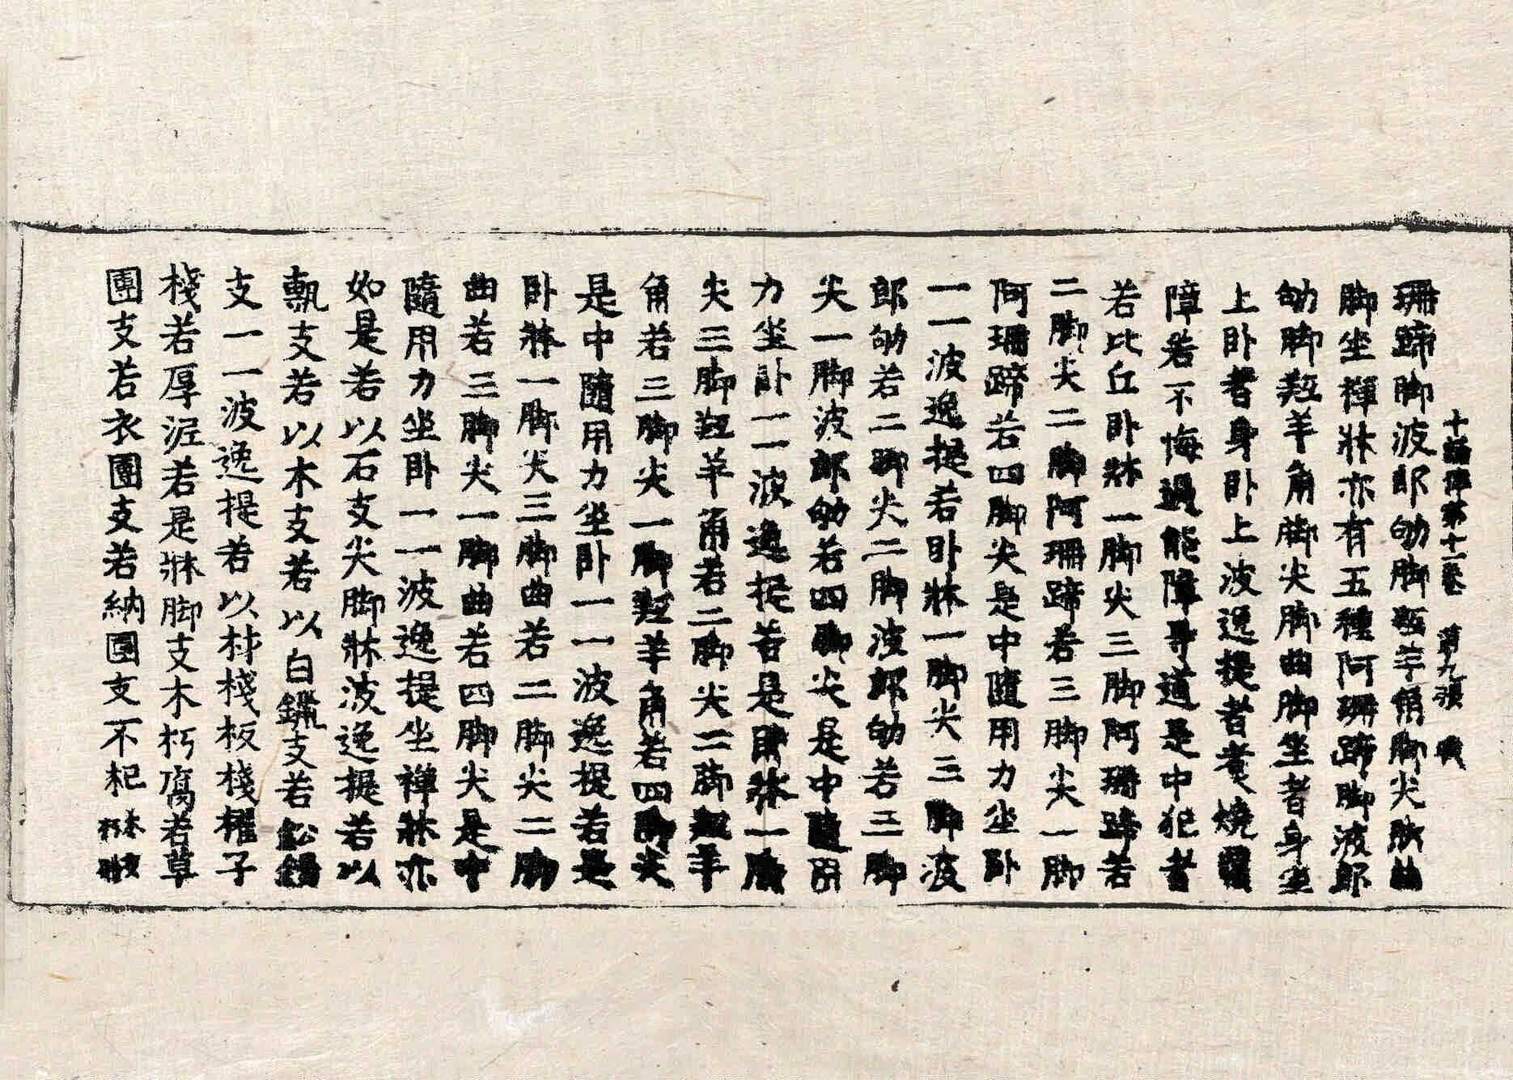 十誦律第十一卷 第九張
珊蹄脚波郎劬脚羖羊角脚尖脚曲
脚坐禪牀亦有五種阿珊蹄脚波郎
劬脚羖羊角脚尖脚曲脚坐者身坐
上卧者身卧上波逸提者煮燒覆
障若不悔過能障㝵道是中犯者
若比丘卧牀一脚尖三脚阿珊蹄若
二脚尖二脚阿珊蹄若三脚尖一脚
阿珊蹄若四脚尖是中隨用力坐卧
一一波逸提若卧牀一脚尖三脚波
郎劬若二脚尖二脚波郎劬若三脚
尖一脚波郎劬若四脚尖是中隨用
力坐卧一一波逸提若是卧牀一脚
尖三脚羖羊角若二脚尖二脚羖羊
角若三脚尖一脚羖羊角若四脚尖
是中隨用力坐卧一一波逸提若是
卧牀一脚尖三脚曲若二脚尖二脚
曲若三脚尖一脚曲若四脚尖是中
隨用力坐卧一一波逸提坐禪牀亦
如是若以石支尖脚牀波逸提若以
甎支若以木支若以白鑞支若鈆錫
支一一波逸提若以材棧板棧欇子
棧若厚泥若是牀脚支木朽腐若草
團支若衣團支若納團支不犯